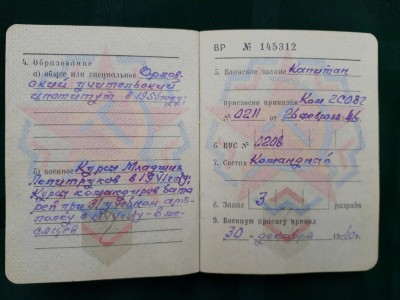 4. Образование
а) общее или специальное Орлов-
ский учительский
институт в 1950 году;
б) военное Курсы Младших
Политруков в 1941 году;
Курсы командиров бата
рей при
полку в
сяцев
ВР № 145312
5. Воинское звание Капитан
присвоено приказом Ком.
№ 0211 от 26 февраля
6. ВУС № 0208
7. Состав Командный
8. Запас 3 разряда
9. Военную присягу принял
30 " декабря 1940 г.